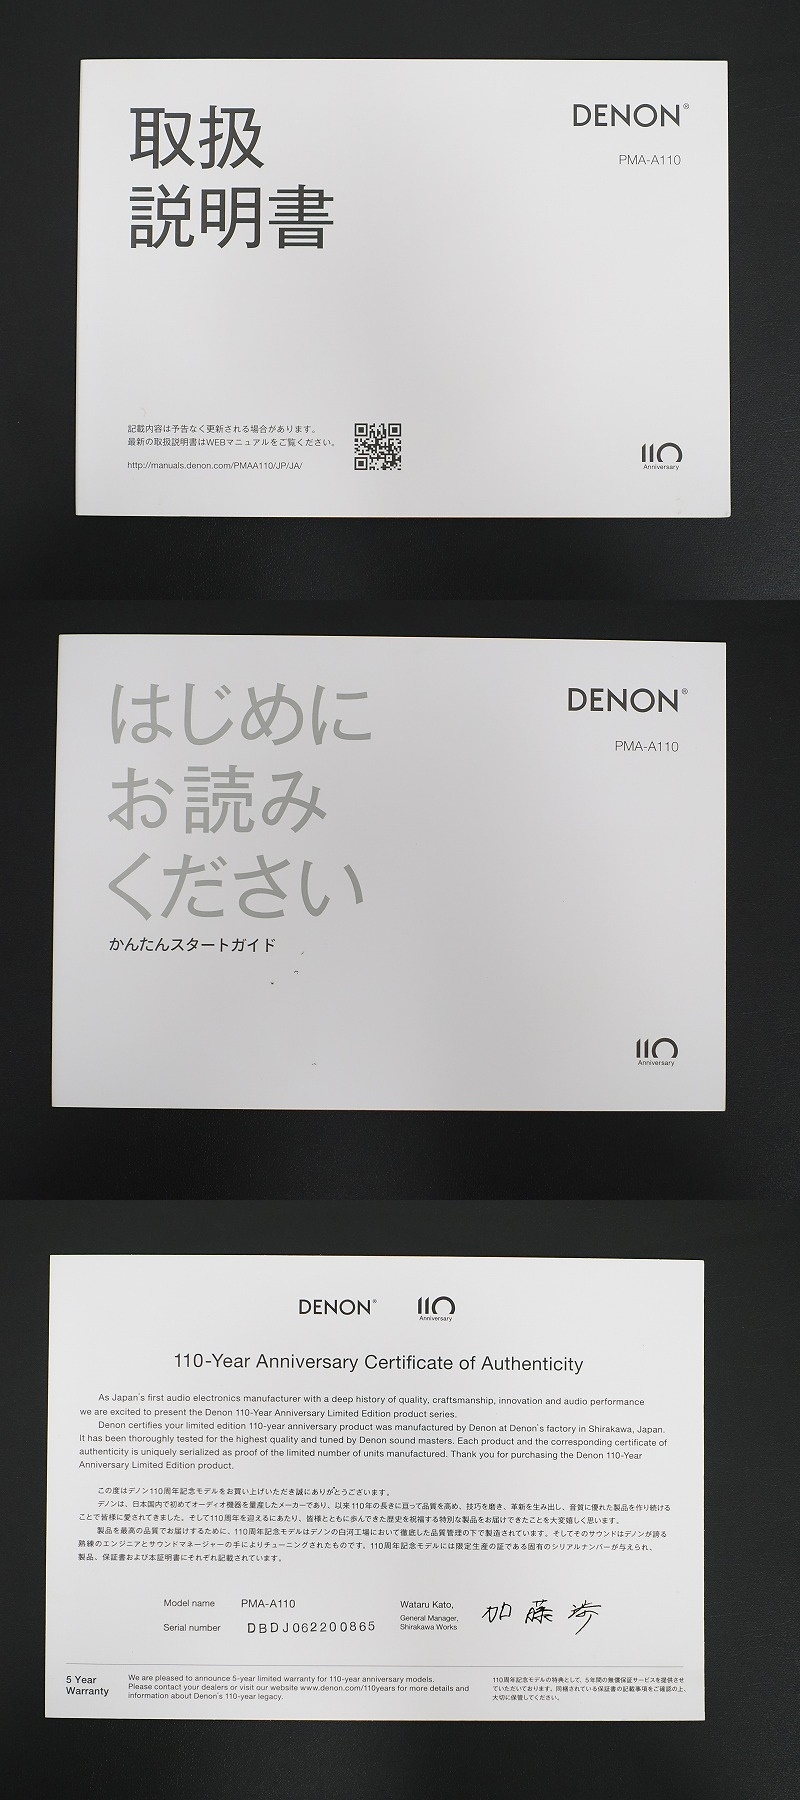 取扱
説明書
DENON®
PMA-A110
記載内容は予告なく更新される場合があります。
最新の取扱説明書はWEBマニュアルをご覧ください。
http://manuals.denon.com/PMAA110/JP/JA/
110
Anniversary
はじめに
お読み
ください
かんたんスタートガイド
DENON®
PMA-A110
110
Anniversary
DENON®
110
Anniversary
110-Year Anniversary Certificate of Authenticity
As Japan's first audio electronics manufacturer with a deep history of quality, craftsmanship, innovation and audio performance
we are excited to present the Denon 110-Year Anniversary Limited Edition product series.
Denon certifies your limited edition 110-year anniversary product was manufactured by Denon at Denon's factory in Shirakawa, Japan.
It has been thoroughly tested for the highest quality and tuned by Denon sound masters. Each product and the corresponding certificate of
authenticity is uniquely serialized as proof of the limited number of units manufactured. Thank you for purchasing the Denon 110-Year
Anniversary Limited Edition product.
この度はデノン110周年記念モデルをお買い上げいただき誠にありがとうございます。
デノンは、日本国内で初めてオーディオ機器を量産したメーカーであり、以来110年の長きに亘って品質を高め、技巧を磨き、革新を生み出し、音質に優れた製品を作り続ける
ことで皆様に愛されてきました。そして110周年を迎えるにあたり、皆様とともに歩んできた歴史を祝福する特別な製品をお届けできたことを大変嬉しく思います。
製品を最高の品質でお届けするために、110周年記念モデルはデノンの白河工場において徹底した品質管理の下で製造されています。そしてそのサウンドはデノンが誇る
熟練のエンジニアとサウンドマネージャーの手によりチューニングされたものです。110周年記念モデルには限定生産の証である固有のシリアルナンバーが与えられ、
製品、保証書および本証明書にそれぞれ記載されています。
Model name PMA-A110
Serial number DBDJ062200865
Wataru Kato,
General Manager,
Shirakawa Works
加藤 渉
5 Year
Warranty
We are pleased to announce 5-year limited warranty for 110-year anniversary models.
Please contact your dealers or visit our website www.denon.com/110years for more details and
information about Denon's 110-year legacy.
110周年記念モデルの特典として、5年間の無償保証サービスを提供させ
ていただいております。同梱されている保証書の記載事項をご確認の上、
大切に保管してください。